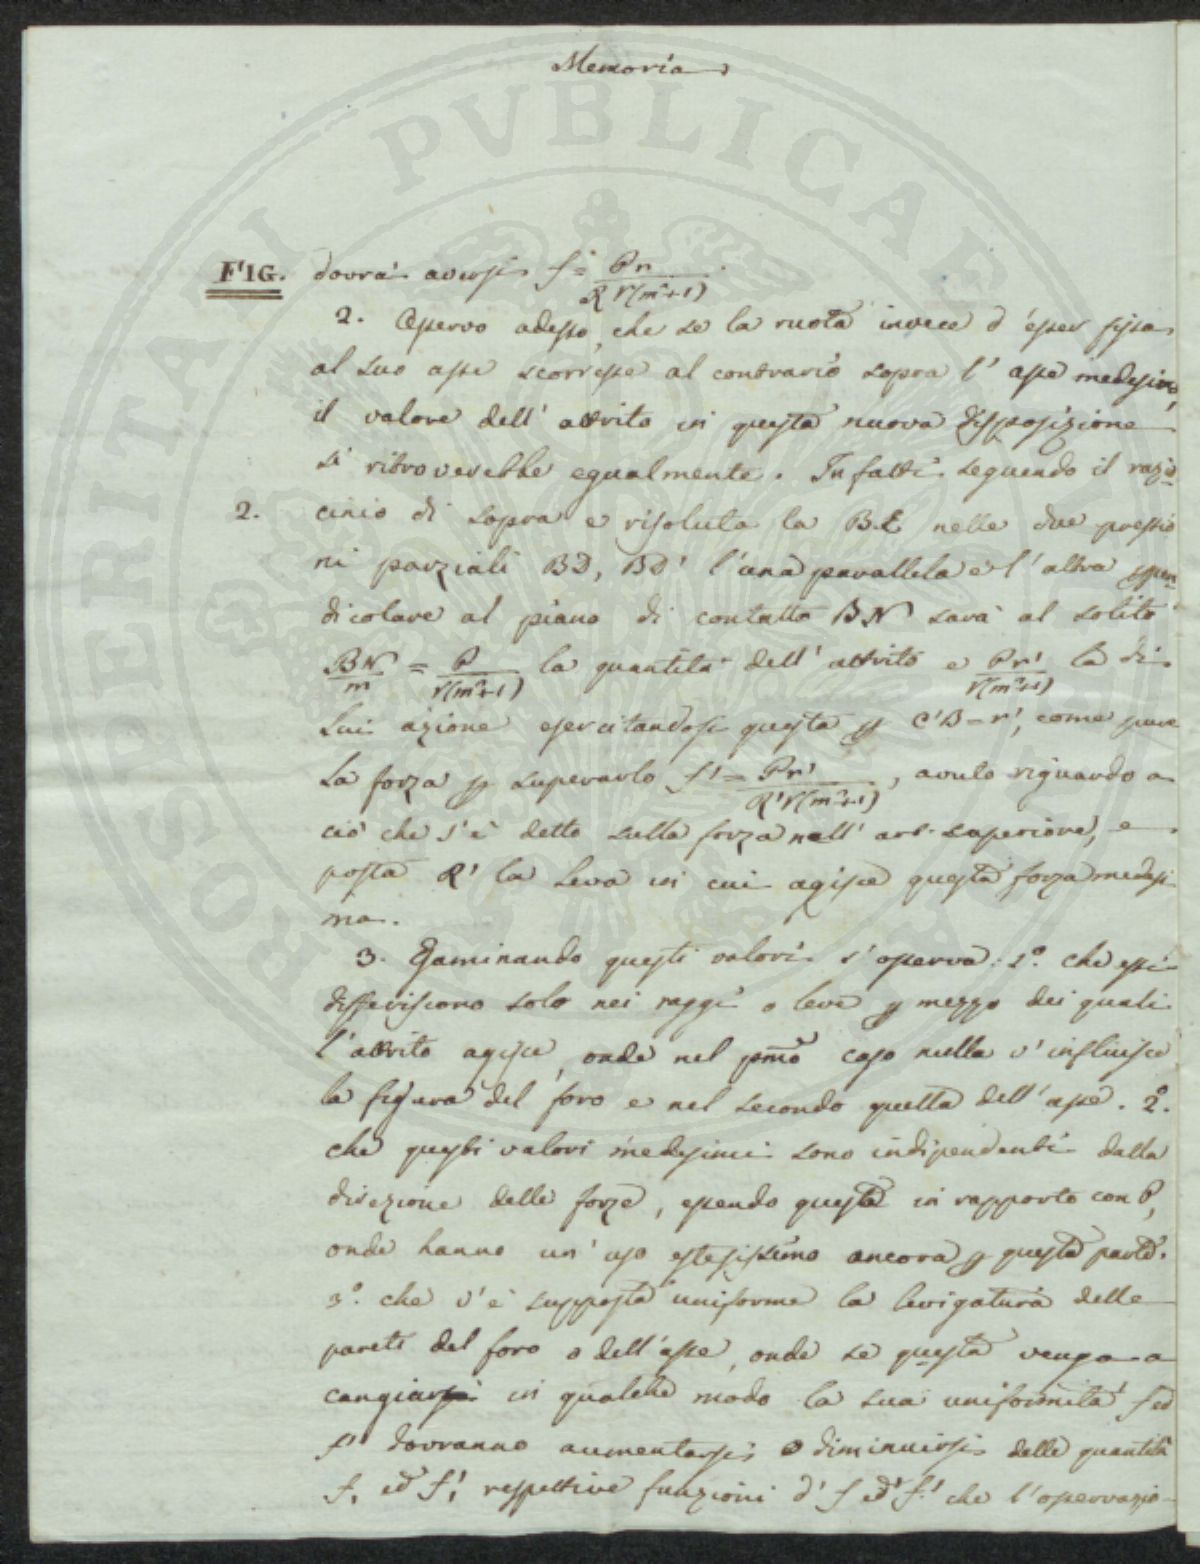 Memoria
FIG. dovrà aversi f = Pr / R√(m²+1)
2. Osservo adesso, che se la ruota invece d'esser fissa
al suo asse scorresse al contrario sopra l'asse medesimo,
il valore dell'attrito in questa nuova disposizione
si ritroverebbe egualmente. Infatti seguendo il razio
2. cinio di sopra e risoluta la BE nelle due pressio
ni parziali BD, BD' l'una parallela e l'altra perpen
dicolare al piano di contatto BN sarà al solito
BN/m = P/√(m²+1) la quantità dell'attrito e Pr'/√(m²+1) la di
lui azione esercitandosi questa p C'B=r', come pure
la forza p superarlo f' = Pr' / R'√(m²+1), avuto riguardo a
ciò che s'è detto sulla forza nell'art. superiore, e
posta R' la leva in cui agisce questa forza medesi
ma.
3. Esaminando questi valori s'osserva: 1º. che essi
differiscono solo nei raggi o leve p mezzo dei quali
l'attrito agisce, onde nel pmo caso nulla v'influisce
la figura del foro e nel secondo quella dell'asse. 2º.
che questi valori medesimi sono indipendenti dalla
direzione delle forze, essendo questa in rapporto con P,
onde hanno un'uso estesissimo ancora p questa parte.
3º. che s'è supposta uniforme la levigatura delle
pareti del foro o dell'asse, onde se questa venga a
cangiarsi in qualche modo la sua uniformità f ed
f' dovranno aumentarsi o diminuirsi delle quantità
f, ed f', respettive funzioni d'f ed f' che l'osservazio